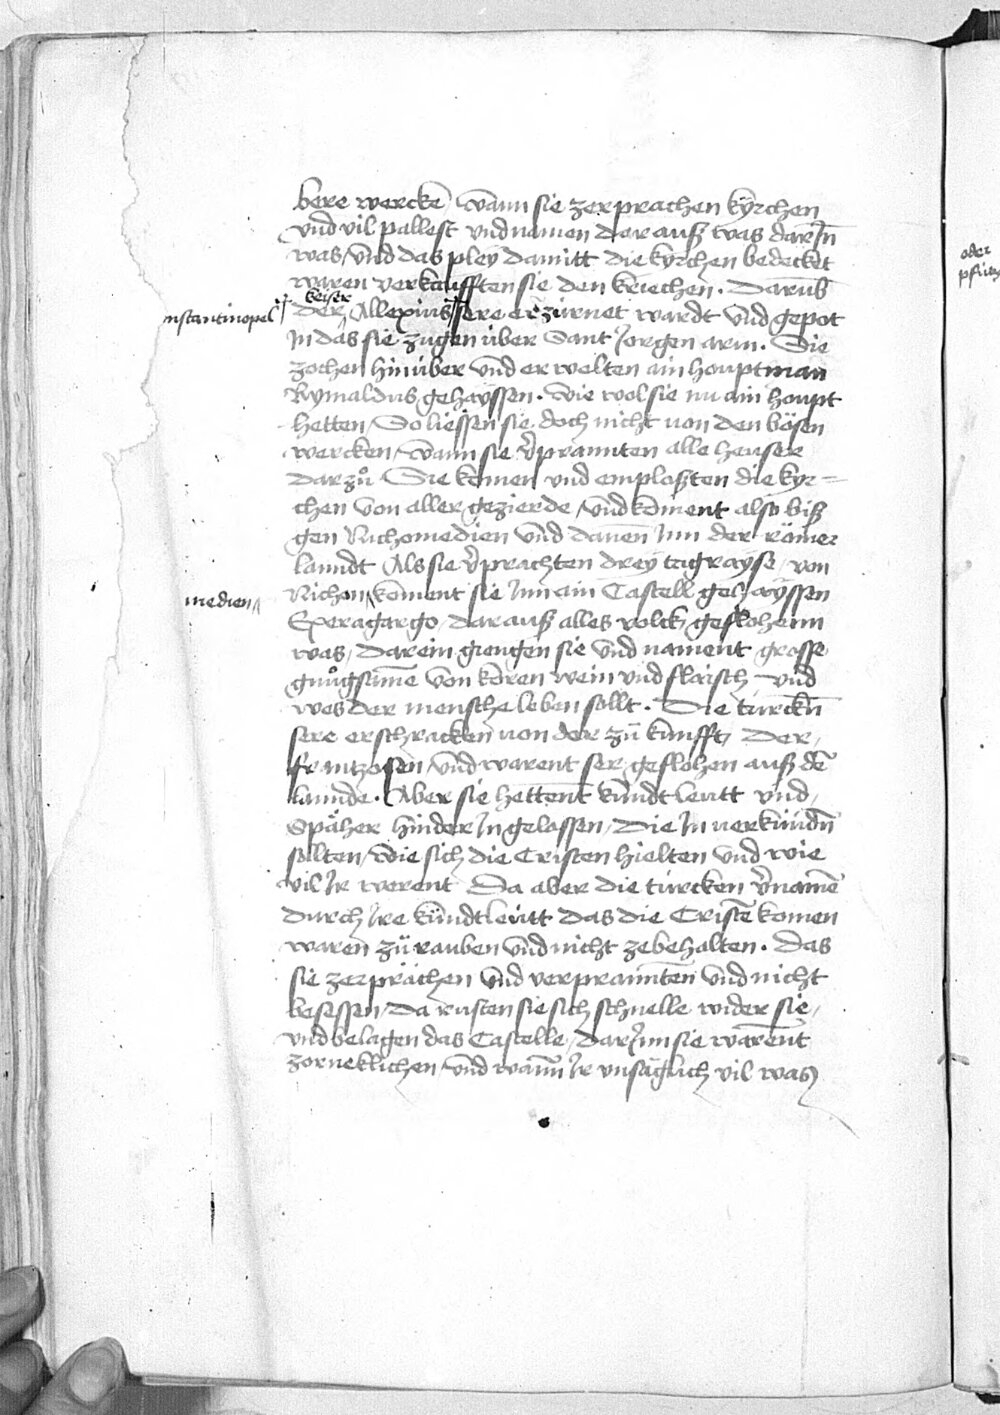 bere wercke wann sie zerprachen kyrchen
vnd vil pallest vnd namen dar auß was dar Jn̄
was / vnd das pley damitt die kyrchen bedeckt
waren verkaufften sie den kriechen . Darūb
nstantinopel
keiser
der Allexius sere erzürnet wardt vnd gepot
Jn das sie zugen über Sant Jorgen arm . Sie
zochen hinüber vnd erwelten ain houptman
Rymaldus gehayssen . Wie wol sie nu ain houpt
hetten / So liessen sie doch nicht von den bösen
wercken / wann sie v̄prannten alle heuser
dar zů Sie komen vnd emploßten die kyr=
chen von aller gezierde / vnd koment also biß
gen Nichomedien vnd dannen Jnn der römer
lanndt Als sie v̄prachten drey tagrayse / von
medien
Nichon koment sie Jnn ain Castell gehayssen
Exeragorgo / dar auß alles volck geflohenn
was / Darein giengen sie vnd nament grosse
gnůgsāme von koren wein vnd flaisch / vnd
wes der mensche leben sollt . Die türckn̄
sere erschracken von der zů kunfft / Der /
frantzosen / vnd warent ser geflohen auß dē
lannde . Aber sie hettent kundt leutt vnd /
Späher hinder Jn gelassen / Die Jn verkündn̄
solten / wie sich die Cristen hielten vnd wie
vil Jr werent Da aber die türcken v̄namē
durch Jre kündtleütt das die Cristē komen
waren zů rauben vnd nicht zebehalten . Das
sie zerprächen vnd verprannten vnd nicht
besessen / Da rusten sie sich schnelle wider sie /
vnd belagen das Castelle / Dar Jnn sie warent
zorneklichen / vnd wann Jr vnsäglich vil was
oder